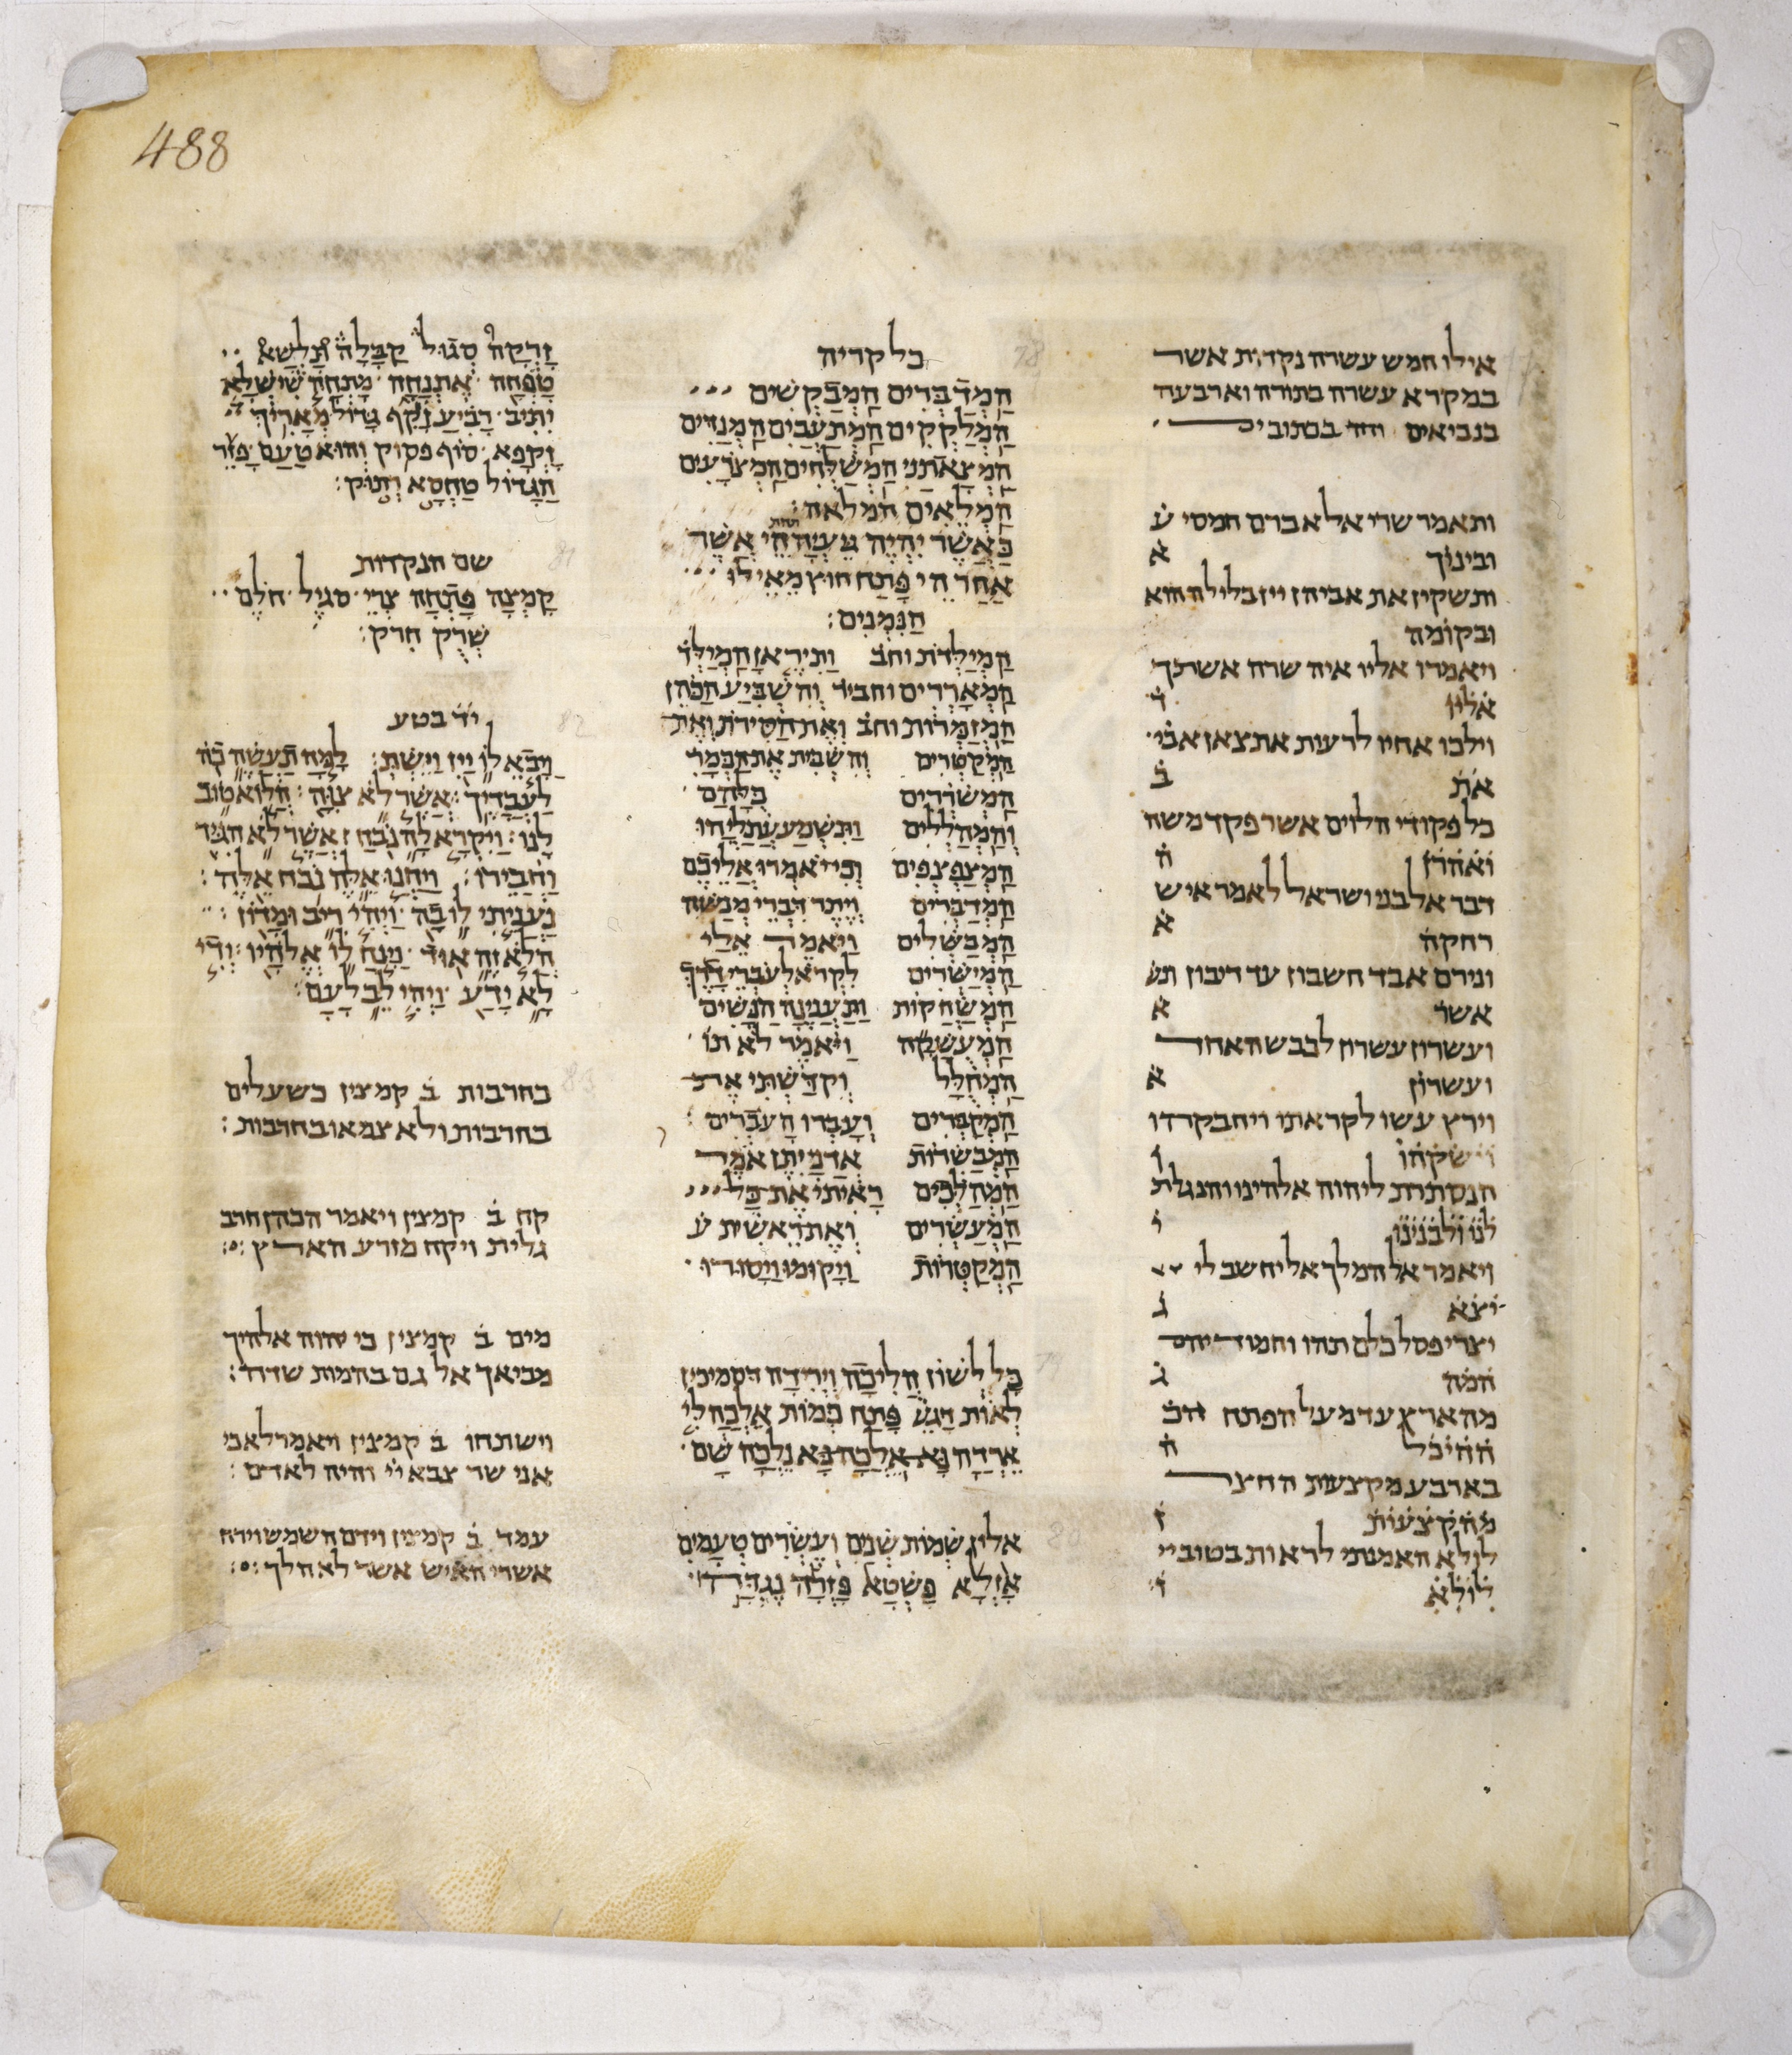 488
אילו חמש עשרה נקדות אשר
במקרא עשרה בתורה וארבעה
בנביאים וחד בכתובים
ותאמר שרי אל אברם חמסי ע
ובינוך א
ותשקין את אביהן יין בלילה הוא
ובקומה
ויאמרו אליו איה שרה אשתך
אליו ו
וילכו אחיו לרעות את צאן אבי
את ב
כל פקודי הלוים אשר פקד משה
ואהרן ה
דבר אל בני ישראל לאמר איש
רחקה א
ונירם אבד חשבון עד דיבון ונש
אשר א
ועשרון עשרון לכבש האחד
ועשרון א
וירץ עשו לקראתו ויחבקהו
וישקהו ו
הנסתרת ליהוה אלהינו והנגלת
לנו ולבנינו י
ויאמר אל המלך אל יחשב לי
יצא ג
יצרי פסל כלם תהו וחמודיהם
המה ג
מהארץ עד מעל הפתח הכ
ההיכל ה
בארבע מקצעות החצר
מהקצעות ז
לולא האמנתי לראות בטוב יי
לולא ו
כל קריה
הַמְדַבְּרִים הַמְבַקְשִׁים
הַמְלַקְקִים הַמְתַעֲבִים הַמְנַדִּים
הַמְצֹאתַנִי הַמְשַׁלְּחִים הַמְצֹרָעִים
הַמְלֵאִים המלאה:
כַּאֲשֶׁר יִהְיֶה עִם תחת הֵי אֲשֶׁר
אַחַר הי פָּתַח חוץ מֵאֵילּוּ
הַנִּמְנִים:
הַמְיַלְּדֹת וחב וַתִּירֶאןָ הַמְיַלְּד
הַמְאָרְרִים וחביר וְהִשְׁבִּיעַ הַכֹּהֵן
הַמְזַמְּרוֹת וחב וְאֶת הַסִּירֹת וְאֶת
הַמְקַטְּרִים וְהִשְׁבִּית אֶת הַכְּמָרִ
הַמְשֹׁרְרִים כֻּלְּהַם
וְהַמְהַלְלִים וַתִּשְׁמַע עֲתַלְיָהוּ
הַמְצַפְצְפִים וְכִי יֹאמְרוּ אֲלֵיכֶם
הַמְדַבְּרִים וְיֶתֶר דִּבְרֵי מְנַשֶּׁה
הַמְבַשְּׁלִים וַיֹּאמֶר אֵלַי
הַמְיַשְּׁרִים לִקְרֹא לְעֹבְרֵי דָרֶךְ
הַמְשַׂחֲקוֹת וַתַּעֲנֶינָה הַנָּשִׁים
הַמְעֻשָּׁקָה וַיֹּאמֶר לֹא תוֹ
הַמְחֻלָּל וְקִדַּשְׁתִּי אֶת
הַמְקַבְּרִים וְעָבְרוּ הָעֹבְרִים
הַמְבַשְּׂרוֹת אֲדֹנָי יִתֶּן אֹמֶר
הַמְהַלְּכִים רָאִיתִי אֶת כָּל
הַמְעַשְּׂרִים וְאֶת רֵאשִׁית ע
הַמְקַטְּרוֹת וַיָּקוּמוּ וַיָּסִירוּ
כָּל לְשׁוֹן הֲלִיכָה וִירִידָה הסמיכין
לְאוֹת דָּגֵשׁ פָּתַח כְּמוֹת אֵלְכָה לִּי
אֵרְדָה נָּא אֵלְכָה נָּא נֵלְכָה שָּׁם
אלין שְׁמוֹת שְׁנַיִם וְעֶשְׂרִים טְעָמִים
אָזְלָא פַּשְׁטָא פָּזְרָה נֶגְדָּה
זַרְקָה סְגוֹל קַבָּלָה תַּלְשָׁא
טַפְחָה אֶתְנַחָה מָתְחָה שִׁישְׁלָא
יְתִיב רָבִיעַ זָקֵף גָּדוֹל מַאֲרִיךְ
זָקְפָא סוֹף פסוק וְהוּא טַעַם פָּזֵר
הַגָּדוֹל טַחְסָא וְתוֹק:
שם הנקדות
קָמְצָה פַּתְחָה צְרֵי סגיל חלם
שְׁרֻק חרק:
יד בטע
וַיָּבֵא לוֹ יַיִן וַיֵּשְׁתְּ: לָמָּה תַעֲשֶׂה כֹה
לַעֲבָדֶיךָ: אֲשֶׁר לֹא צִוָּה: הֲלוֹא טוֹב
לָנוּ: וַיִּקְרָא לָהּ נֹבַח: אֲשֶׁר לֹא הִגִּיד
וַחֲבֵירוֹ: וַיַּחֲנוּ אֵלֶּה נֹכַח אֵלֶּה:
נַעֲנֵיתִי לוֹ בָהּ: וַיְהִי רִיב וּמָדוֹן:
הֲלֹא זֶה אוּד: מָנַח לוֹ אֱלֹהָיו: וְדִי
לָא יָדַע: וַיְהִי לֵב לָעָם:
בחרבות ב קמצין כשעלים
בחרבות ולא צמאו בחרבות:
קח ב קמצין ויאמר הכהן חרב
גלית ויקח מזרע הארץ:
מים ב קמצין כי יהוה אלהיך
מביאך אל גם בהמות שדה:
וישתחו ב קמצין ויאמר לא כי
אני שר צבא יי והיה לאדם:
עמד ב קמצין וידם השמש וירח
אשרי האיש אשר לא הלך: